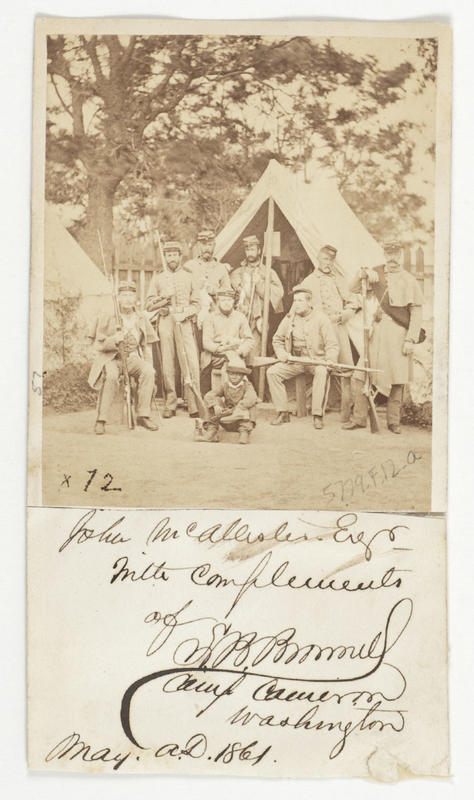 57.
x 72
5779.F.12.a
John McAllister Esqr
With Complements
of
Camp Cameron
Washington
May. A.D. 1861.